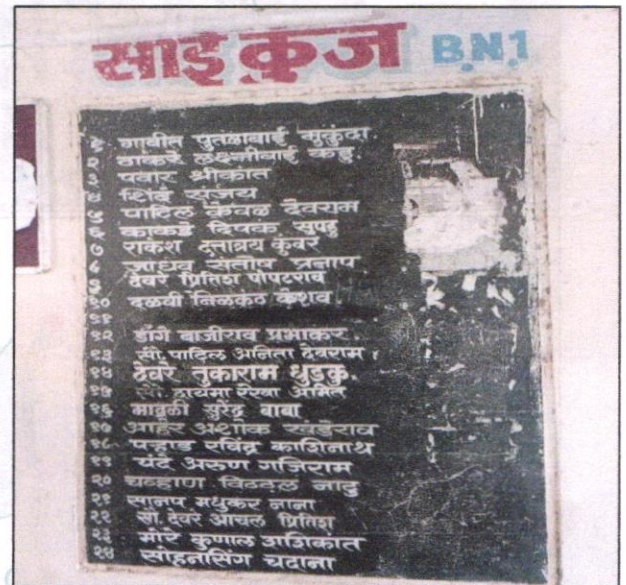 साई कुज B.N.1
१ गावीत पुतळाबाई मुकुंदा
२ ठाकरे लक्ष्मीबाई कडु
३ पवार श्रीकांत
४ शिंदे संजय
५ पाटिल केवळ देवराम
६ काकडे दिपक सुपडु
७ राकेश दत्तात्रय कुवर
८ जाधव संतोष प्रताप
९ देवरे प्रितिश पोपटराव
१० दळवी निळकंठ केशव
११
१२ डांगे बाजीराव प्रभाकर
१३ सौ. पाटिल अनिता देवराम
१४ देवरे तुकाराम धुडकु.
१५ सौ. ठायमा रेखा अमित
१६ मावळी सुरेंद्र बाबा
१७ आहेर अशोक खंडेराव
१८ पऱ्हाड रविंद्र काशिनाथ
१९ यंदे अरुण गजिराम
२० चव्हाण विठ्ठल नादु
२१ सानप मधुकर नाना
२२ सौ. देवरे आंचल प्रितिश
२३ मोरे कुणाल शशिकांत
२४ सोहनसिंग चदाना